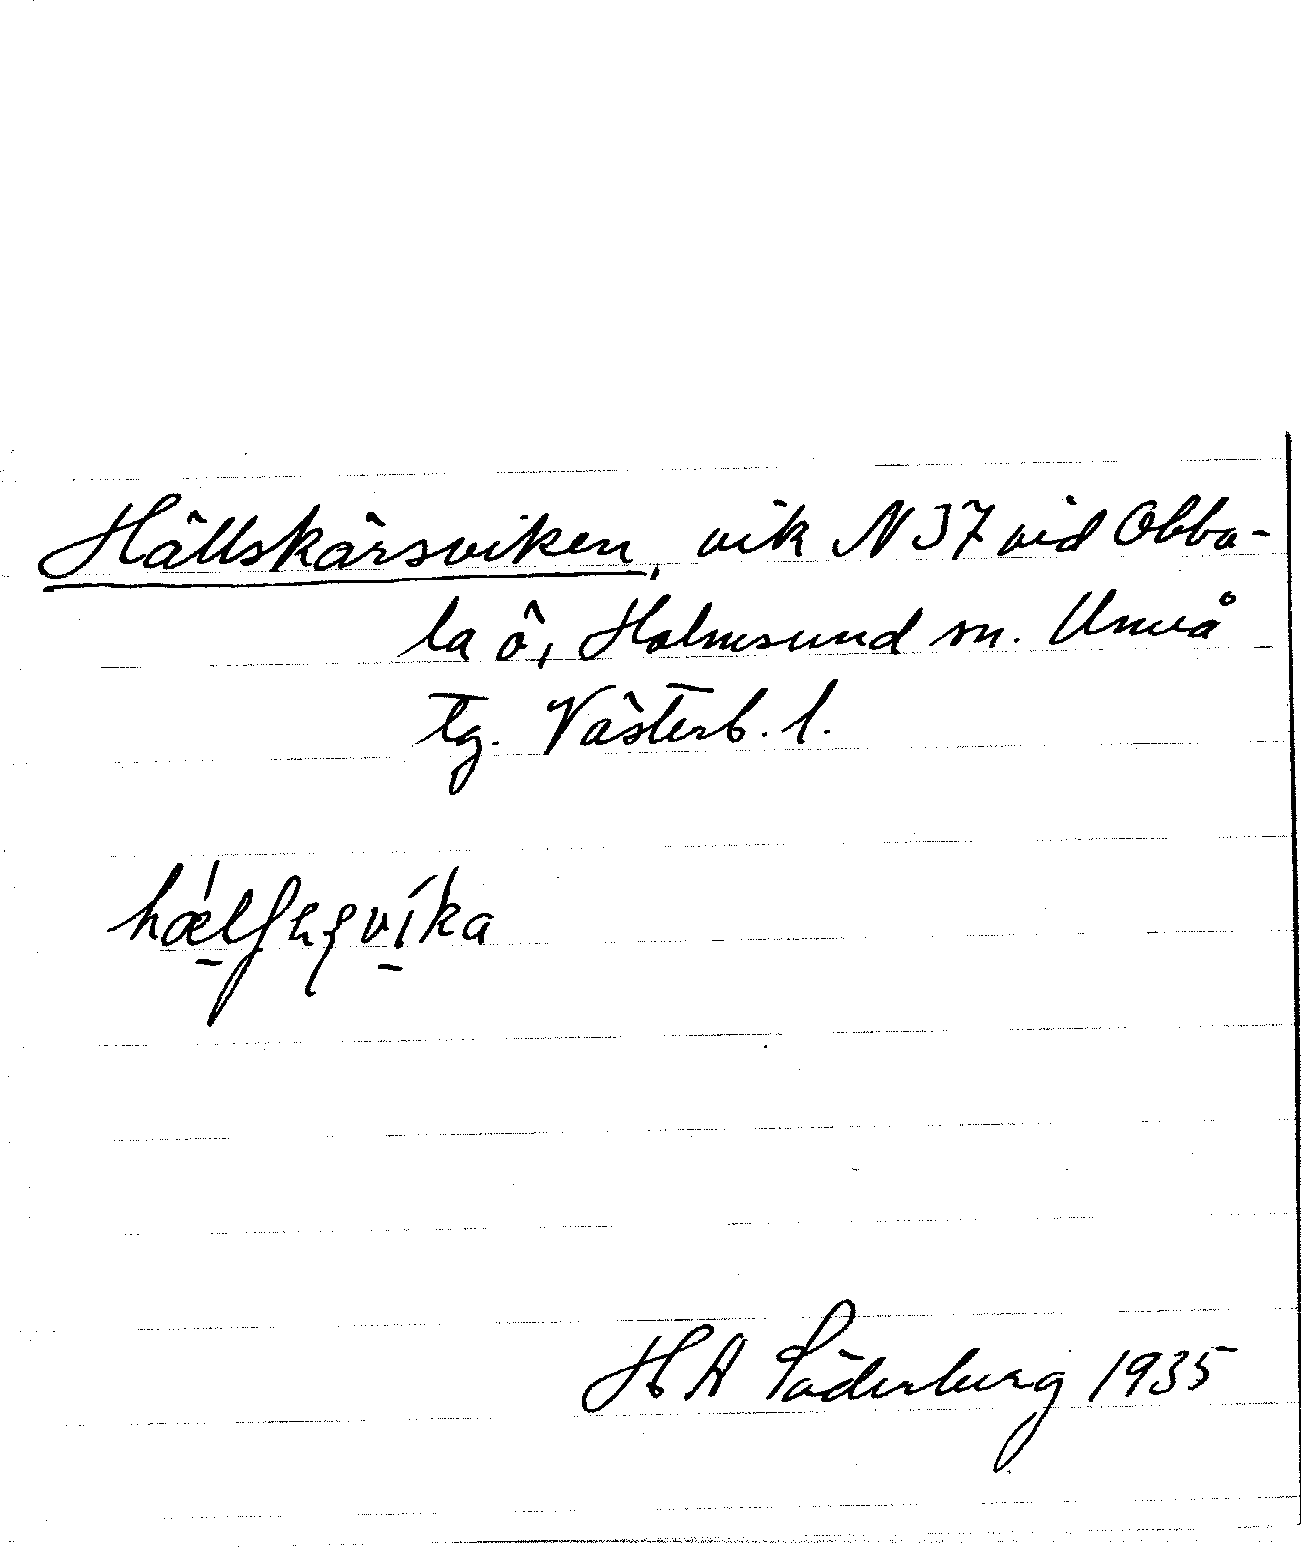 Hällskärsviken, vik N 37 vid Obbo-
la ö, Holmsund sn. Umeå
tg. Västerb. l.
H A Söderberg 1935